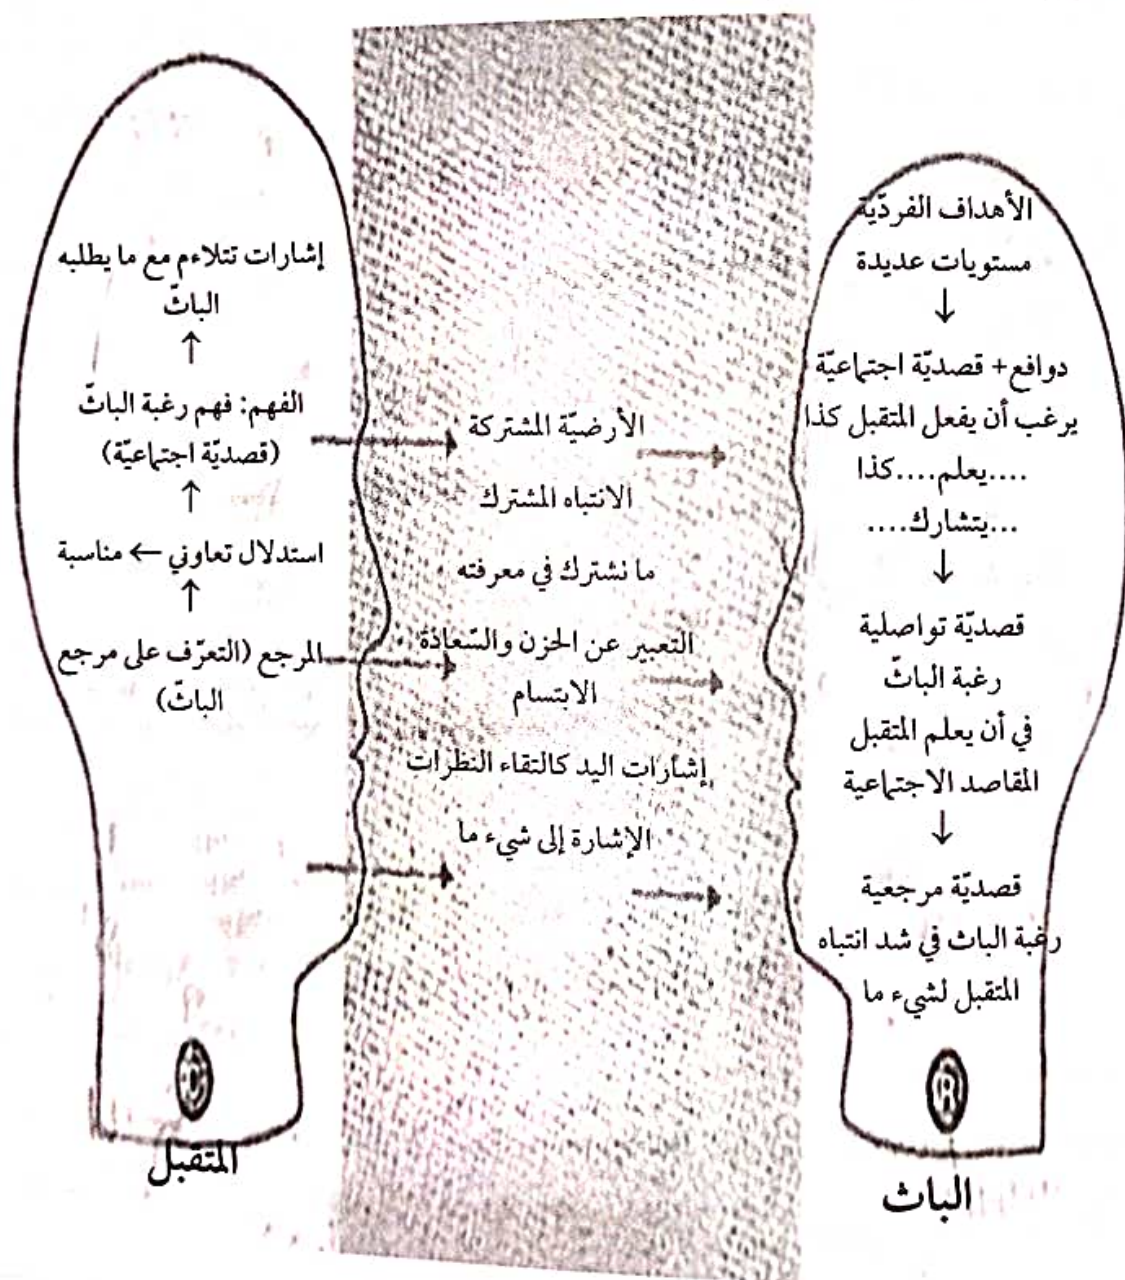 الأهداف الفردّية
مستويات عديدة
↓
دوافع+ قصديّة اجتماعيّة
يرغب أن يفعل المتقبل كذا
....يعلم....كذا
...يتشارك....
↓
قصديّة تواصلية
رغبة الباثّ
في أن يعلم المتقبل
المقاصد الاجتماعية
↓
قصديّة مرجعية
رغبة الباث في شد انتباه
المتقبل لشيء ما
الباث
الأرضيّة المشتركة
الانتباه المشترك
ما نشترك في معرفته
التعبير عن الحزن والسّعادة
الابتسام
إشارات اليد كالتقاء النظرات
الإشارة إلى شيء ما
إشارات تتلاءم مع ما يطلبه
الباثّ
↑
الفهم: فهم رغبة الباثّ
(قصديّة اجتماعيّة)
↑
استدلال تعاوني ← مناسبة
↑
المرجع (التعرّف على مرجع
الباثّ)
المتقبل